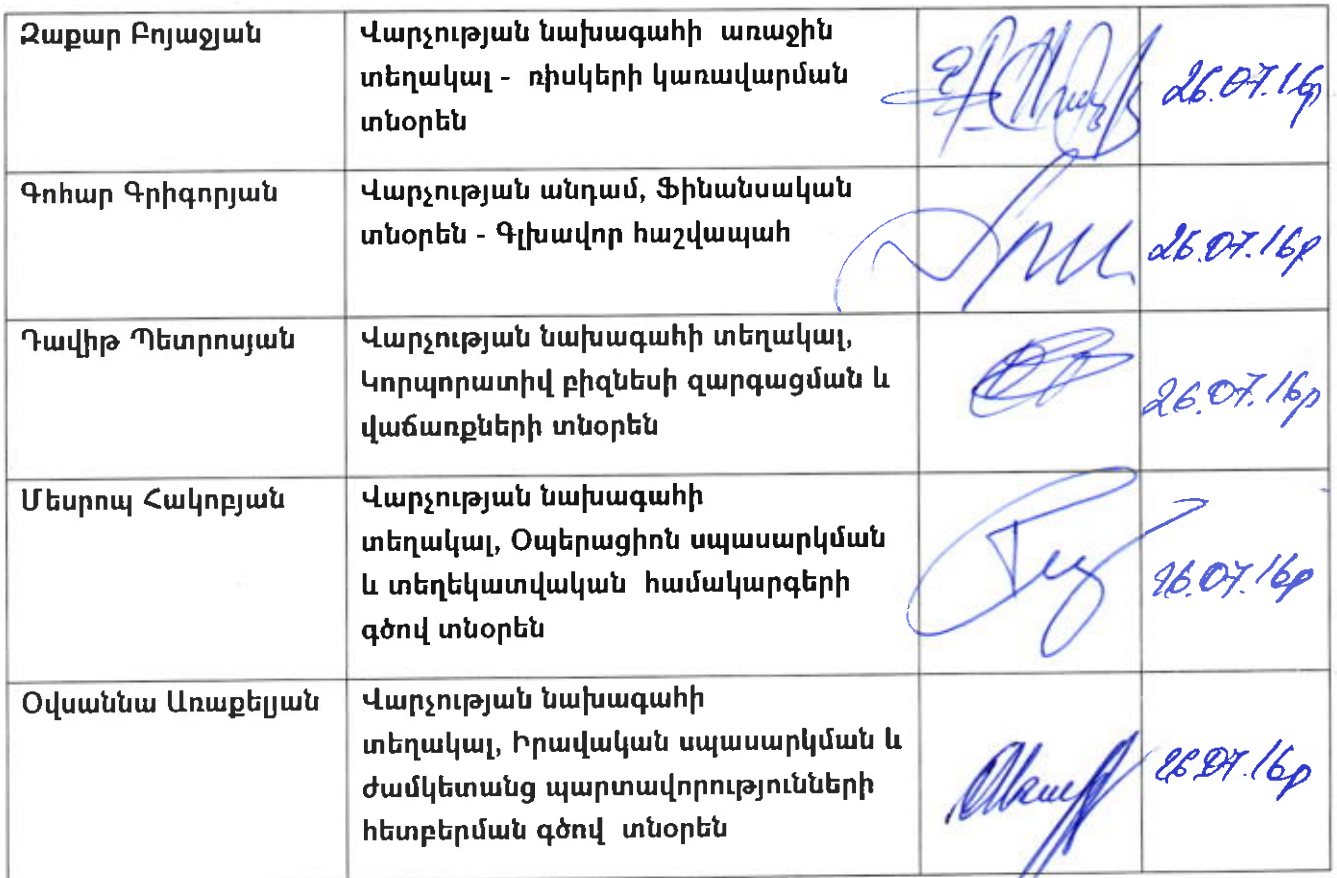 Զաքար Բոյաջյան
Վարչության նախագահի առաջին
տեղակալ - ռիսկերի կառավարման
տնօրեն
26.07.16թ
Գոհար Գրիգորյան
Վարչության անդամ, Ֆինանսական
տնօրեն - Գլխավոր հաշվապահ
26.07.16թ
Դավիթ Պետրոսյան
Վարչության նախագահի տեղակալ,
Կորպորատիվ բիզնեսի զարգացման և
վաճառքների տնօրեն
26.07.16թ
Մեսրոպ Հակոբյան
Վարչության նախագահի
տեղակալ, Օպերացիոն սպասարկման
և տեղեկատվական համակարգերի
գծով տնօրեն
26.07.16թ
Օվսաննա Առաքելյան
Վարչության նախագահի
տեղակալ, Իրավական սպասարկման և
ժամկետանց պարտավորությունների
հետբերման գծով տնօրեն
26.07.16թ